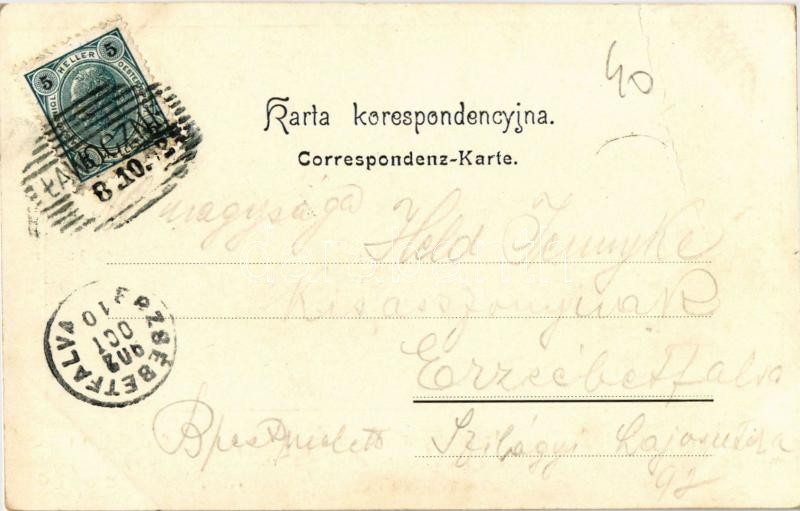 5 HELLER 5
ŁAWOCZNE
8.10.
40
Karta korespondencyjna.
Correspondenz-Karte.
nagysága
Held Jennyke
Kisasszonynak
Erzsébetfalva
Bpest mellett Szilágyi Lajos utca
92
ERZSÉBETFALVA
902
OCT
10